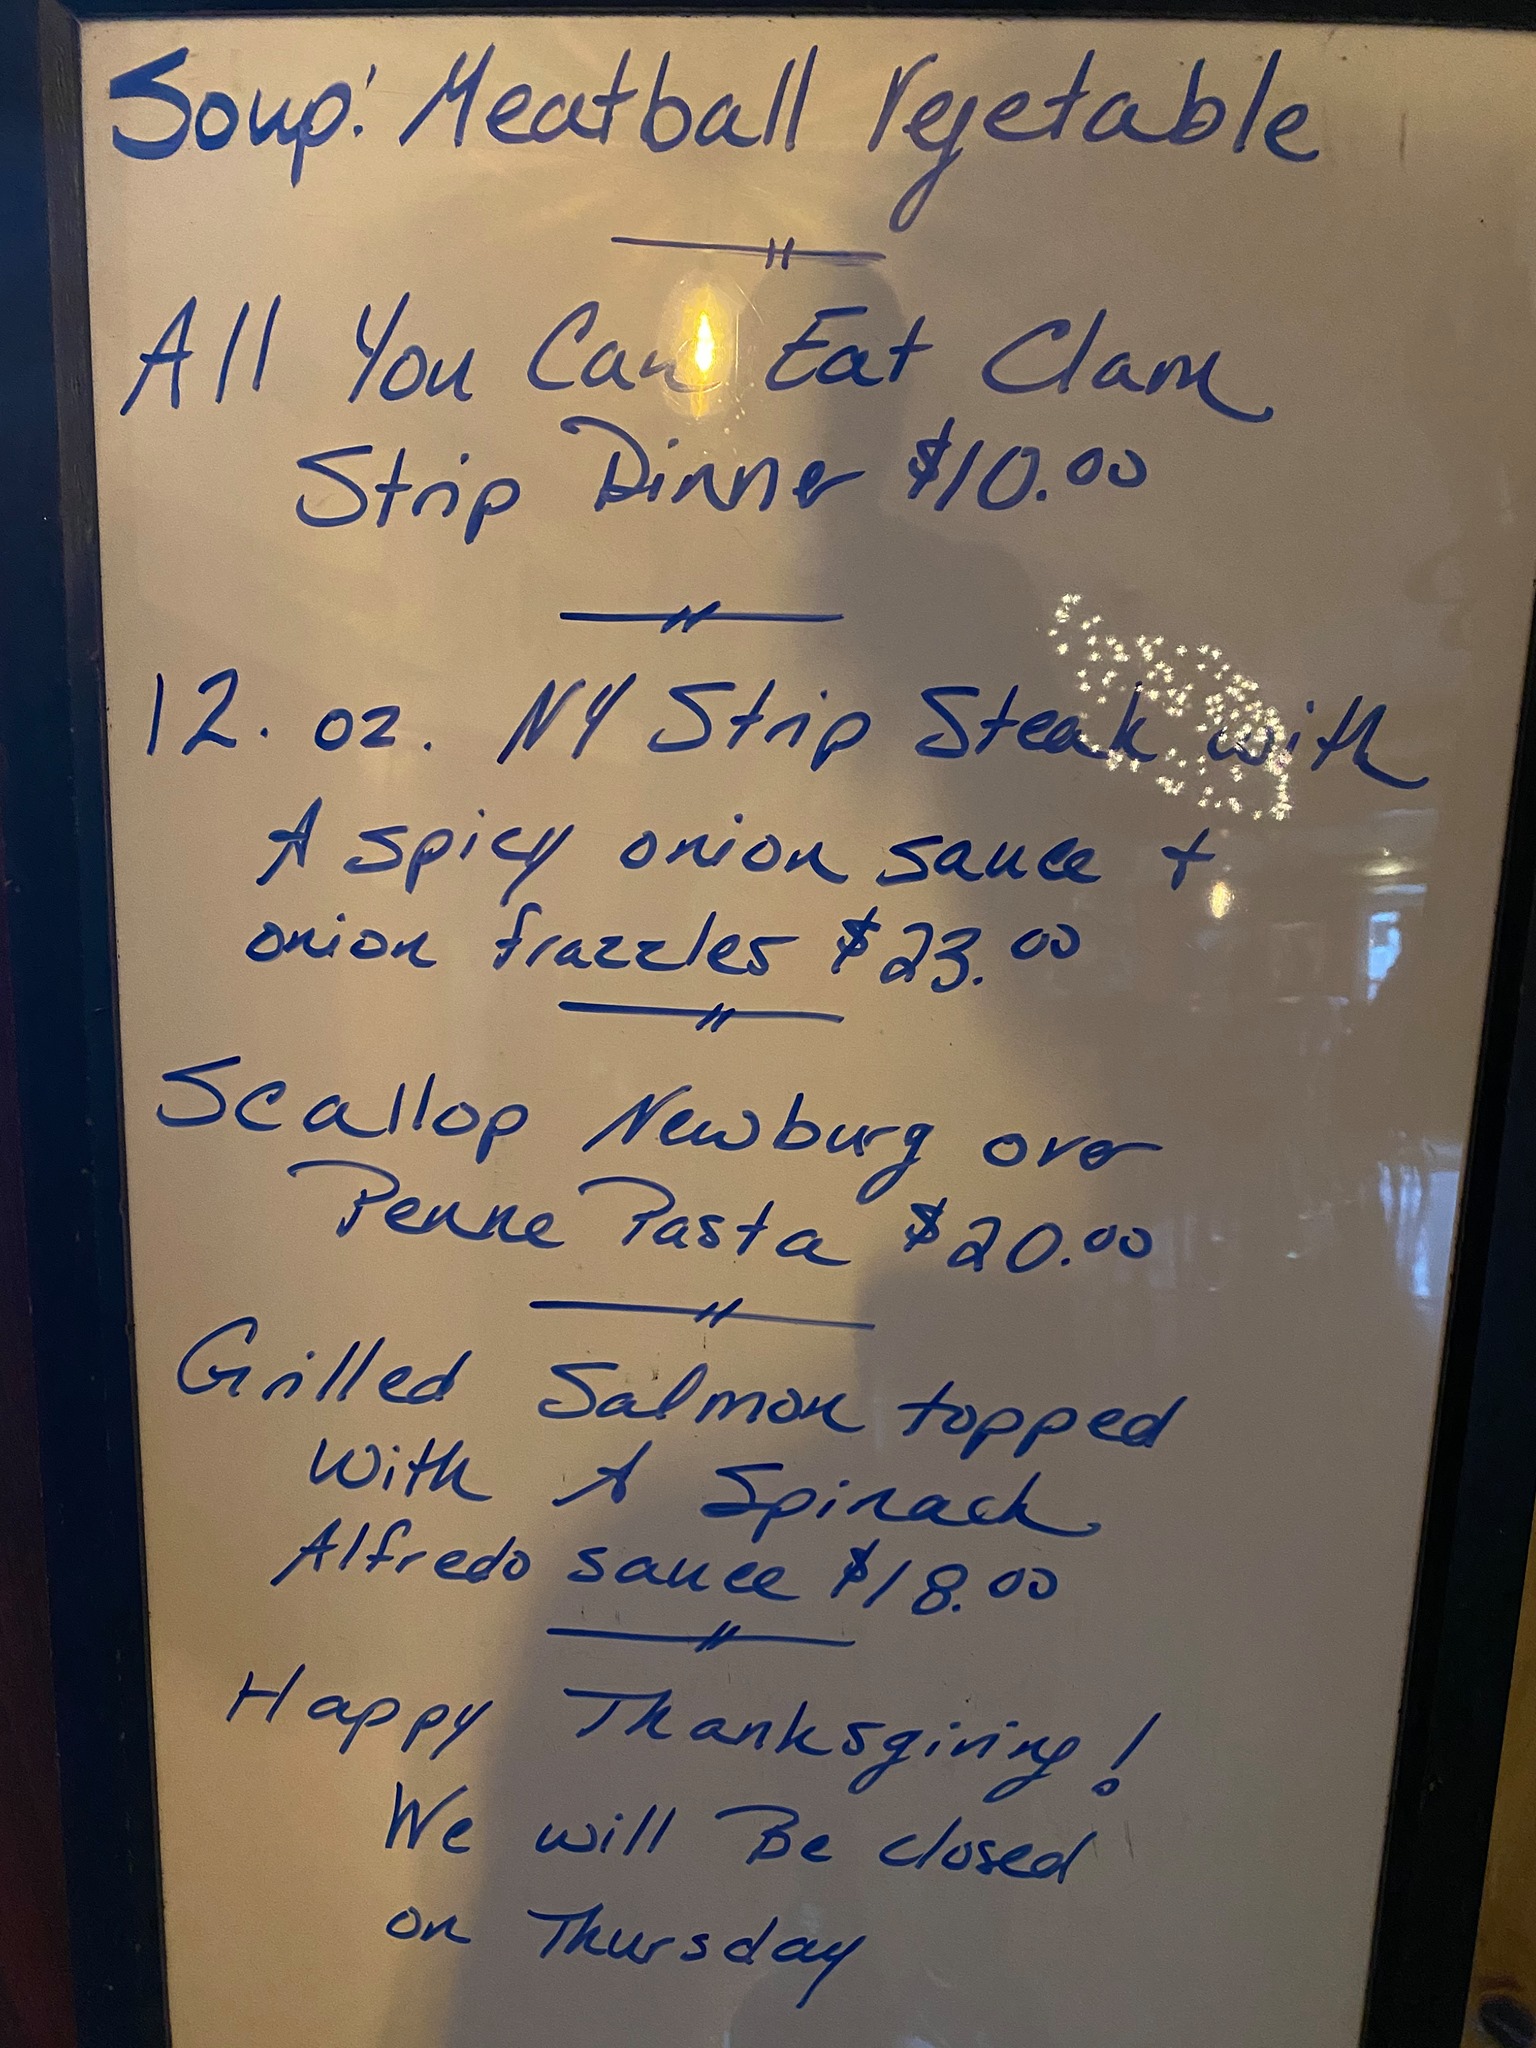 Soup: Meatball Vegetable
All You Can Eat Clam
Strip Dinner $10.00
12. oz. NY Strip Steak with
A spicy onion sauce +
onion frazzles $23.00
Scallop Newburg over
Penne Pasta $20.00
Grilled Salmon topped
with A Spinach
Alfredo sauce $18.00
Happy Thanksgiving!
We will Be closed
on Thursday